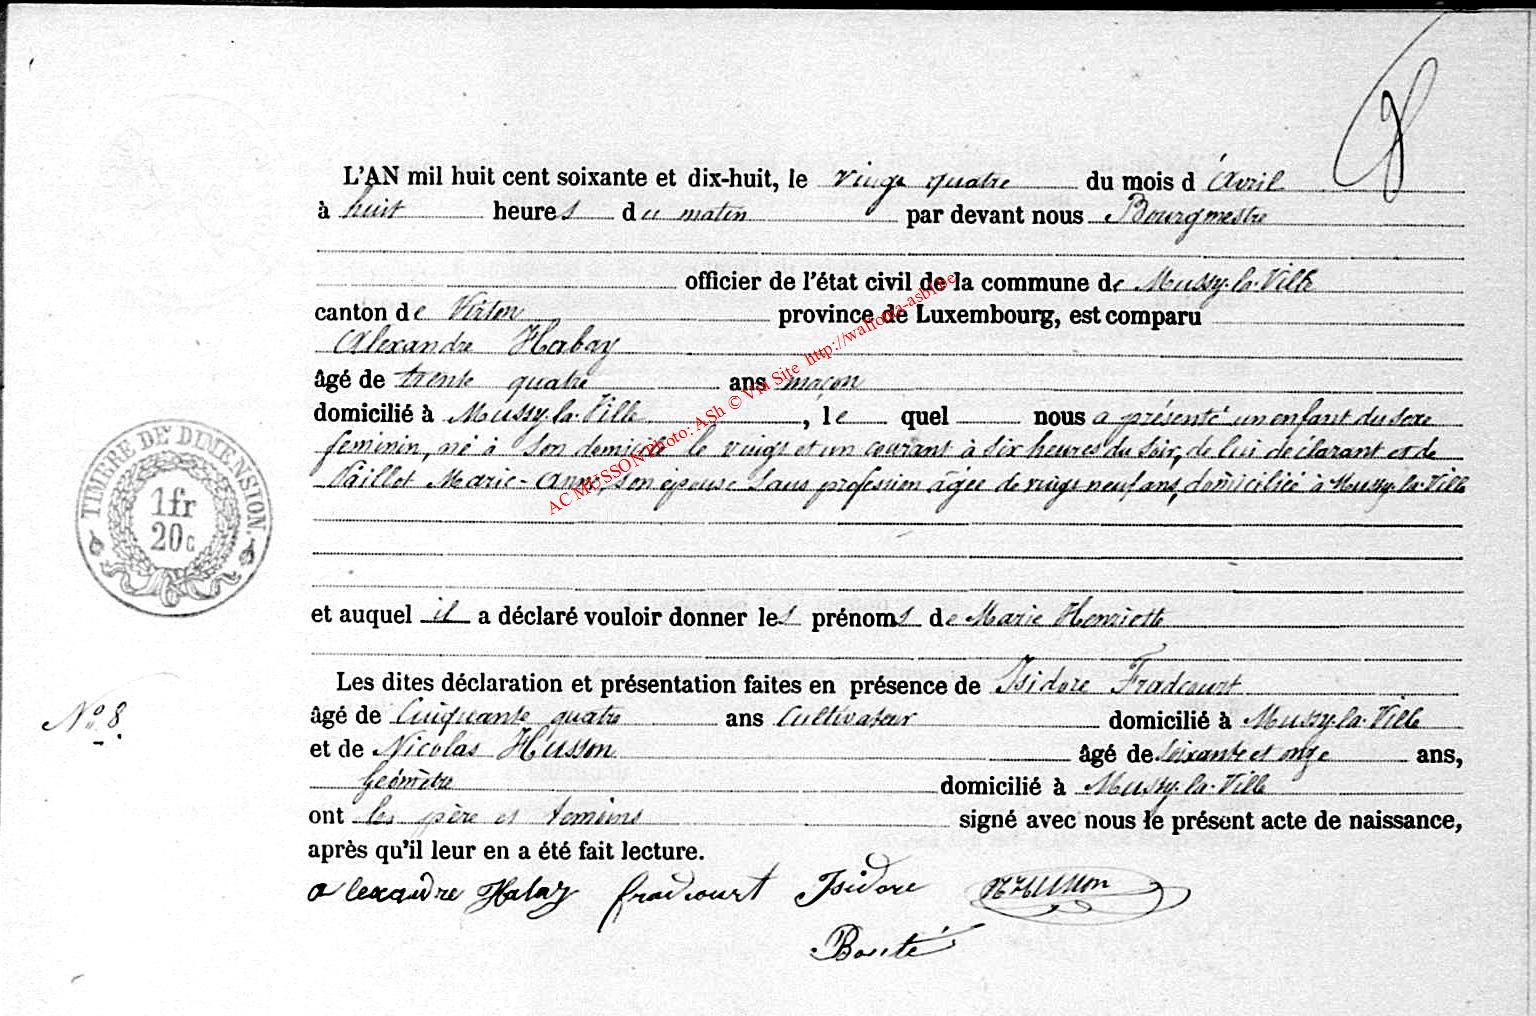 8
L'AN mil huit cent soixante et dix-huit, le vingt quatre du mois d'Avril
à huit heures du matin par devant nous Bourgmestre
officier de l'état civil de la commune de Mussy-la-Ville
canton de Virton province de Luxembourg, est comparu
Alexandre Habay
âgé de trente quatre ans maçon
domicilié à Mussy-la-Ville, le quel nous a présenté un enfant du sexe
féminin, né à son domicile le vingt et un courant à six heures du soir, de lui déclarant et de
Vaillot Marie-Anne, son épouse sans profession âgée de vingt neuf ans, domiciliée à Mussy-la-Ville
et auquel il a déclaré vouloir donner les prénoms de Marie Henriette
Les dites déclaration et présentation faites en présence de Isidore Fradcourt
N° 8.
âgé de Cinquante quatre ans Cultivateur domicilié à Mussy-la-Ville
et de Nicolas Husson âgé de soixante et onze ans,
Géomètre domicilié à Mussy-la-Ville
ont les père et temoins signé avec nous le présent acte de naissance,
après qu'il leur en a été fait lecture.
alexandre Habay fradcourt Isidore N Husson
Bouté
TIMBRE DE DIMENSION.
1fr
20c
AC MUSSON Photo: ASh © Via Site http://wallonia-asbl.be